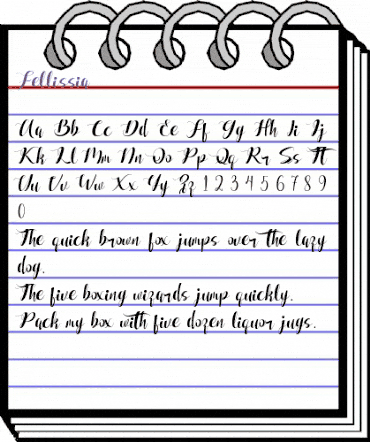 Fellissia
Aa Bb Cc Dd Ee Ff Gg Hh Ii Jj
Kk Ll Mm Nn Oo Pp Qq Rr Ss Tt
Uu Vv Ww Xx Yy Zz 1 2 3 4 5 6 7 8 9
0
The quick brown fox jumps over the lazy
dog.
The five boxing wizards jump quickly.
Pack my box with five dozen liquor jugs.